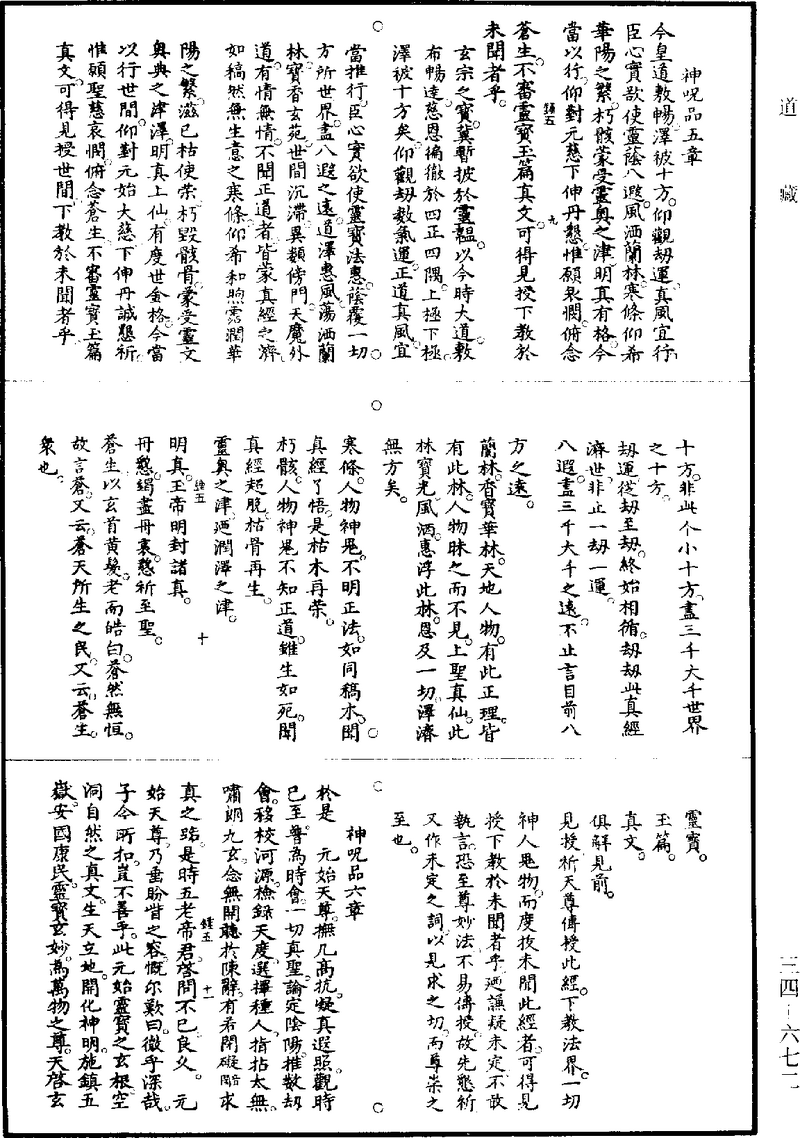 道藏
神呪品五章
今皇道敷暢澤被十方仰觀劫運真風宜行
臣心實欲使靈蔭八遐風洒蘭林寒條仰希
華陽之繁朽骸蒙受靈奧之津明真有格今
當以行仰對元慈下伸丹懇惟願哀憫俯念
鍾五
九
蒼生不審靈寶玉篇真文可得見授下教於
未聞者乎
玄宗之寶蓂暫披於靈韞以今時大道敷
布暢達慈恩徧徹於四正四隅上極下極
澤被十方矣仰觀劫數氣運正道真風宜
當推行臣心實欲使靈寶法惠蔭覆一切
方所世界盡八遐之遠道澤惠風蕩洒蘭
林寶香玄苑世間沉滯異類傍門天魔外
道有情無情不聞正道者皆蒙真經之濟
如稿然無生意之寒條仰希和煦霑潤華
陽之繁滋已枯使榮朽毀骸骨蒙受靈文
奧典之津澤明真上仙有度世金格今當
以行世間仰對元始大慈下伸丹誠懇祈
惟願聖慈哀憫俯念蒼生不審靈寶玉篇
真文可得見授世間下教於未聞者乎
十方非此个小十方盡三千大千世界
之十方
劫運從劫至劫終始相循劫劫此真經
濟世非止一劫一運
八遐盡三千大千之遠不止言目前八
方之遠
蘭林香寶華林天地人物有此正理皆
有此林人物昧之而不見上聖真仙此
林寶光風洒惠浮此林恩及一切澤濟
無方矣
寒條人物神鬼不明正法如同稿木聞
真經了悟是枯木再榮
朽骸人物神鬼不知正道雖生如死聞
真經超脫枯骨再生
靈奧之津廼潤澤之津
鍾五
十
明真玉帝明封諸真
丹懇竭盡丹衷懇祈至聖
蒼生以玄首黄髮老而皓白蒼然無恒
故言蒼又云蒼天所生之民又云蒼生
衆也
靈寶
玉篇
真文
俱解見前
見授祈天尊傳授此經下教法界一切
神人鬼物而度拔未聞此經者可得見
授下教於未聞者乎廼謙疑未定不敢
執言恐至尊妙法不易傳授故先懇祈
又作未定之詞以見求之切而尊崇之
至也
神呪品六章
於是　元始天尊撫几高抗凝真遐照觀時
已至普為時會一切真聖論定陰陽推數劫
會移校河源檢録天度選擇種人指拈太無
嘯朗九玄念無開聽於陳辭有若閉礙
求
鍾五
十一
真之路是時五老帝君啓問不已良久　元
始天尊乃垂眄眥之容慨尔歎曰微乎深哉
子今所扣豈不善乎此元始靈寶之玄根空
洞自然之真文生天立地開化神明施鎮五
嶽安國康民靈寶玄妙為萬物之尊天啓玄
三四－六七二